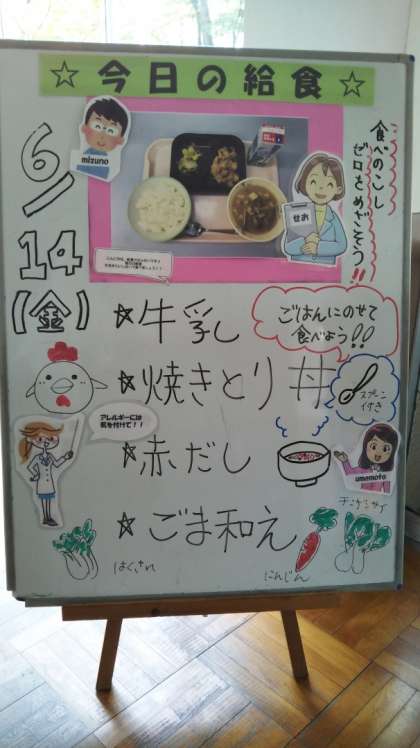 ☆今日の給食☆
6/14(金)
mizuno
せお
食べのこし
ゼロをめざそう!!
☆牛乳
ごはんにのせて
食べよう!!
☆焼きとり丼
スプーン
付き
アレルギーには
気を付けて!!
☆赤だし
umemoto
☆ごま和え
チンゲンサイ
はくさい
にんじん